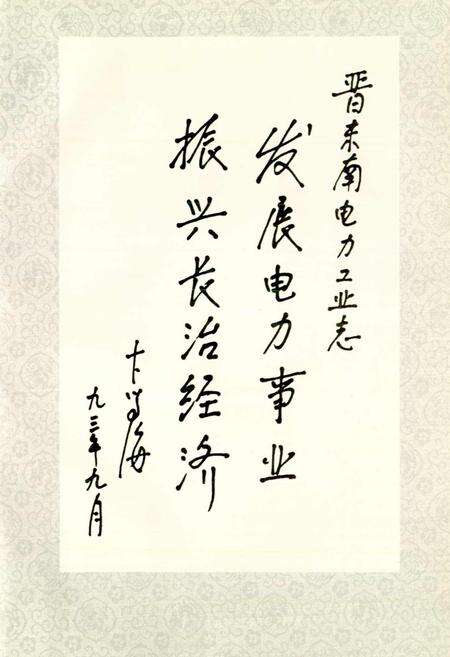 晋东南电力工业志
发展电力事业
振兴长治经济
九三年九月